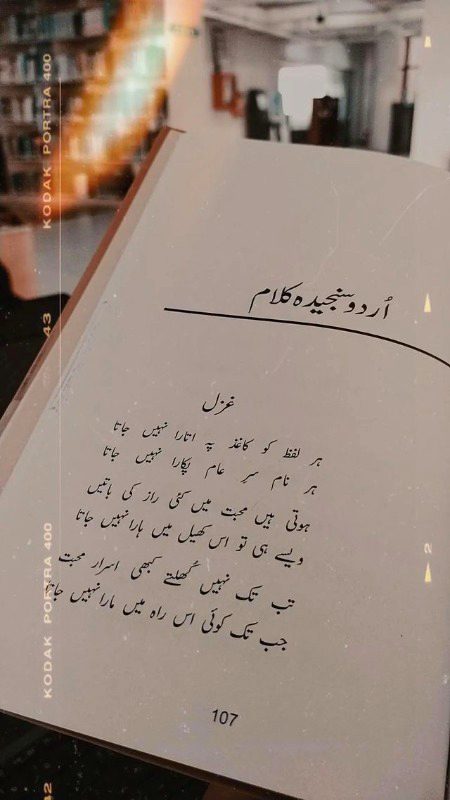 اُردو سنجیدہ کلام
غزل
ہر لفظ کو کاغذ پہ اتارا نہیں جاتا
ہر نام سرِ عام پکارا نہیں جاتا
ہوتی ہیں محبت میں کئی راز کی باتیں
ویسے ہی تو اس کھیل میں ہارا نہیں جاتا
تب تک نہیں کُھلتے کبھی اسرار محبت
جب تک کوئی اس راہ میں مارا نہیں جاتا
107
KODAK PORTRA 400
43
KODAK PORTRA 400
42
2